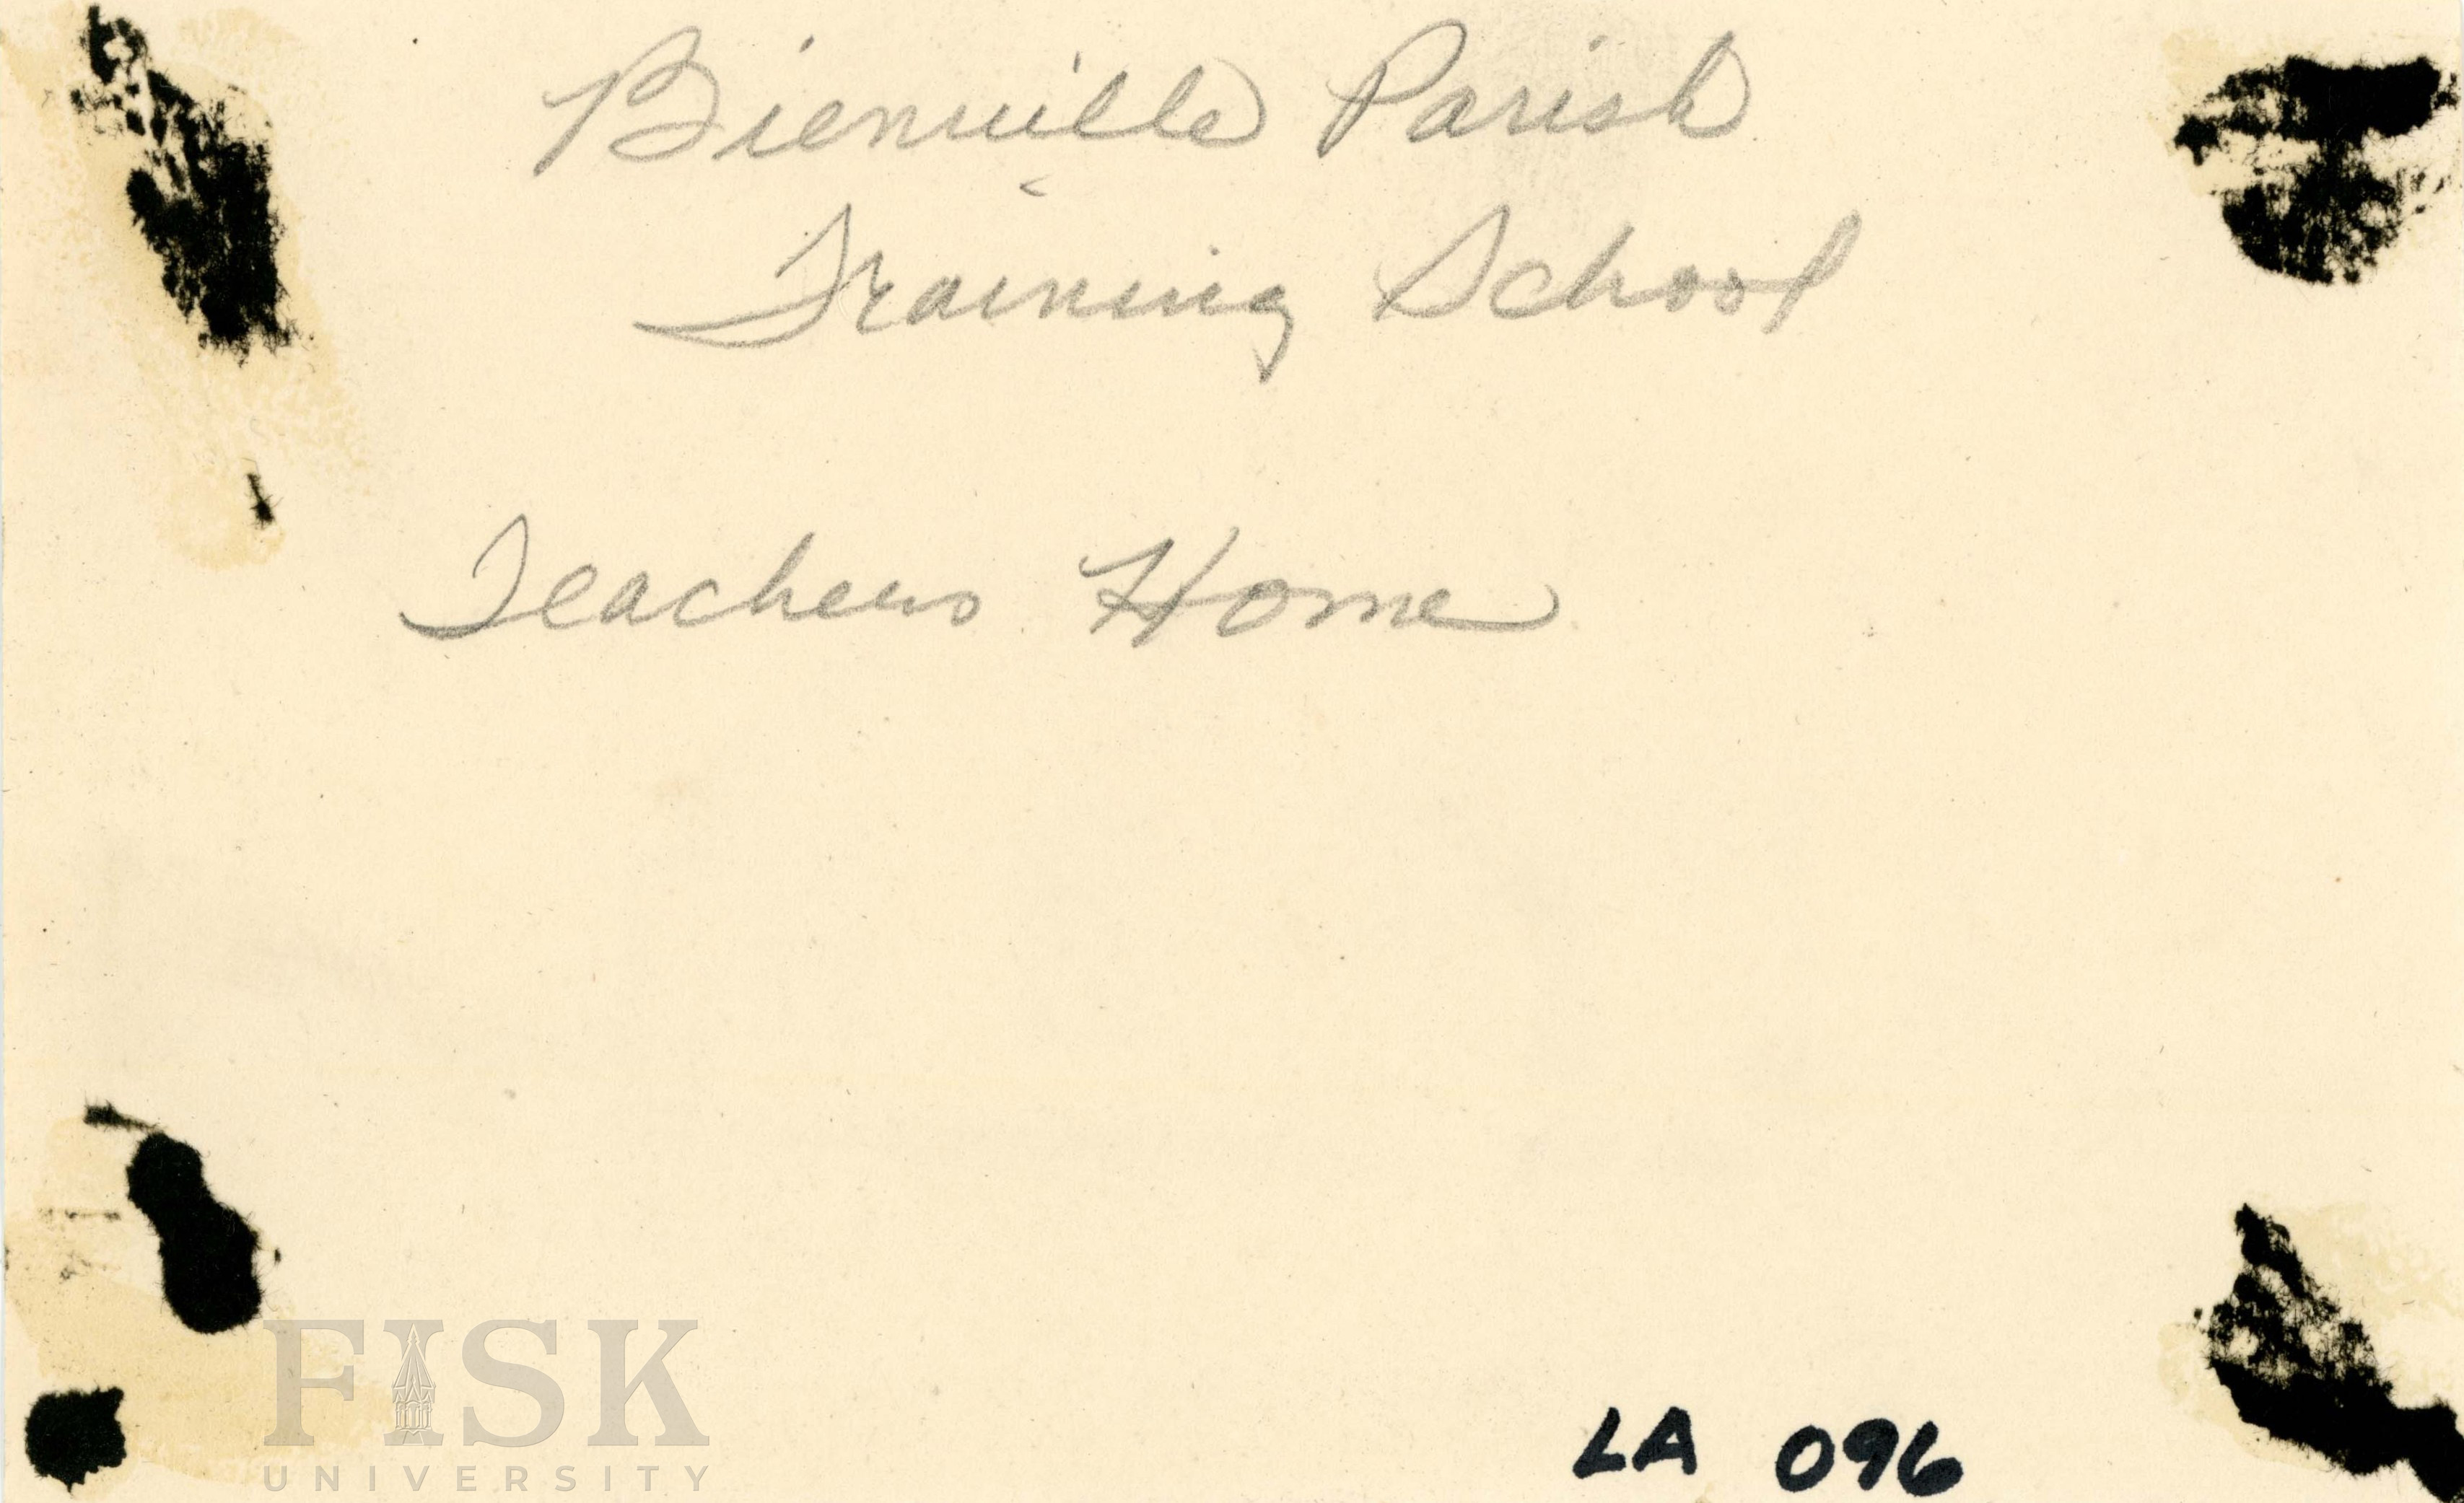 Bienville Parish
Training School
Teachers Home
FISK
UNIVERSITY
LA 096